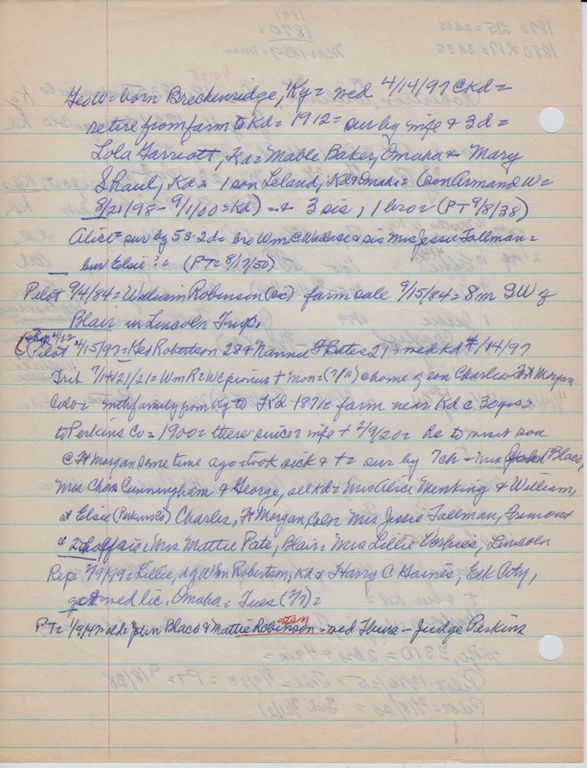 Geo W = born Breckenridge, Ky = wed 4/14/97 @Kd =
retire from farm to Kd = 1912 = sur by wife & 3d =
Lola Garriott, Kd = Mable Baker, Omaha & Mary
S. Raul, Kd = 1 son Leland, Kd & Omaha = (son Armand W =
8/21/98 - 9/1/00 = Kd) = & 3 sis, 1 bro = (PT 9/8/38)
Alice = sur by 5s - 2d = bro Wm C & sis Mrs Jessie Tallman =
bur Elsie? = (PT = 8/17/50)
Pilot 9/4/84 = William Robinson (so) farm sale 9/15/84 = 8m SW of
Blair in Lincoln Twp.
(Rep 4/22
(Pilot 4/15/97 = Geo Robertson 28 & Nannie F Bates 21 = wed Kd 4/14/97
Trib 7/14 21/21 = Wm R = WC pioneer + mon = (7/11) @ home of son Charles = Ft Morgan,
Colo = with family from Ky to Kd 1871 = farm near Kd @ 30 yrs =
to Perkins Co = 1900 = there since = wife + 2/9/20 = He to visit son
@ Ft Morgan some time ago = took sick & + = sur by 7ch - Mrs John Blaco,
Mrs Chas Cunningham & George, all Kd = Mrs Alice Menking & William,
at Elsie (Perkins Co) Charles, Ft Morgan, Colo = Mrs Jessie Tallman, Fremont
& 2 half sis, Mrs Mattie Pate, Blair = Mrs Lillie, Lincoln
Rep 2/9/99 = Lillie, d of Wm Robertson, Kd & Harry C Haines, Elk City,
get wed lic. Omaha = Tues (2/7) =
PT = 1/9/47 = ad = John Blaco & Mattie Robinson = wed Thurs - Judge Perkins